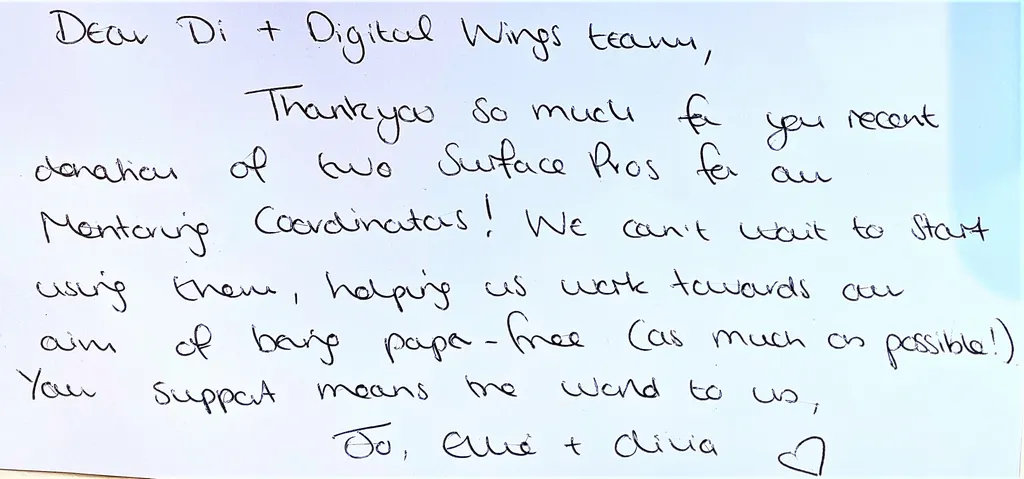 Dear Di + Digital Wings team,
Thankyou so much for your recent
donation of two Surface Pros for our
Mentoring Coordinators! We can't wait to start
using them, helping us work towards our
aim of being paper-free (as much as possible!)
Your support means the world to us,
Jo, Ellie + Olivia ♡